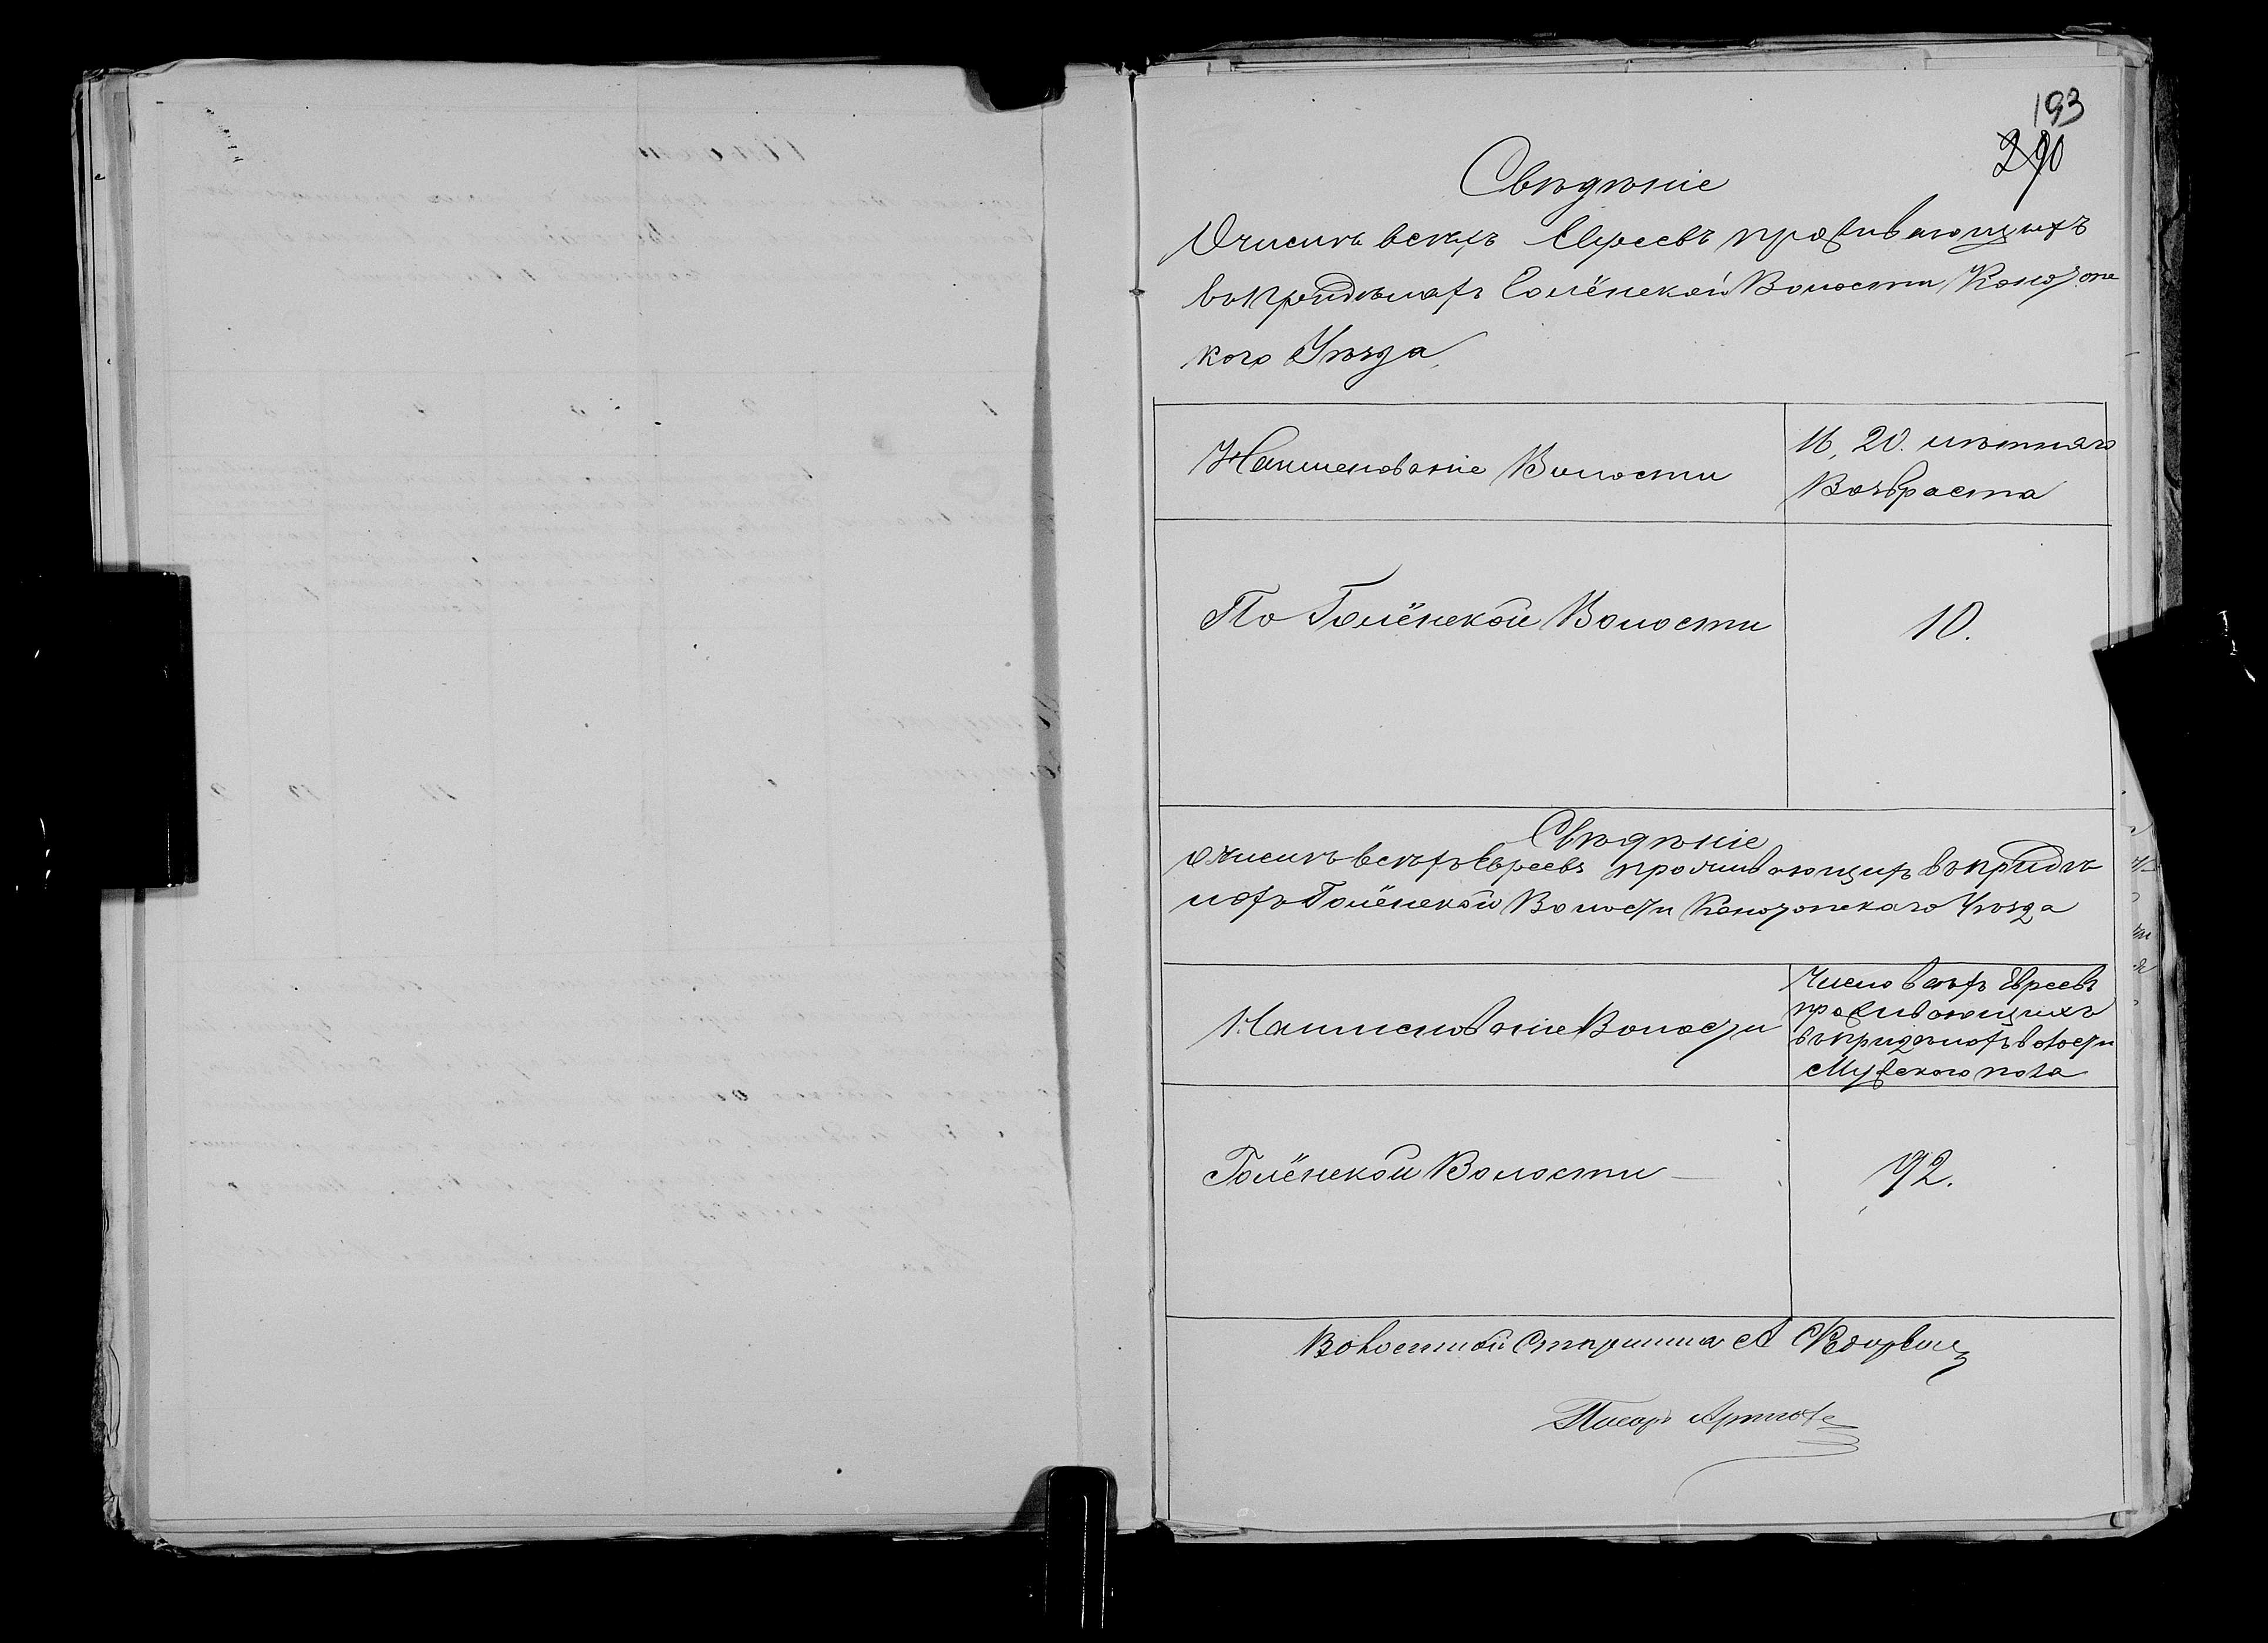 193
290
Свѣдѣніе
Очислѣ всѣхъ Евреевъ проживающихъ
въ Предѣлахъ Голёнской Волости Коното
кого Уѣзда
Наименованіе Волости
16, 20. лѣтняго
Возвраста
По Голёнской Волости
10.
Свѣдѣніе
Очислѣ всѣхъ Евреевъ проживающихъ въ придѣ
лахъ Голёнской Волости Конотопскаго Уѣзда
Наименованіе Волости
Число всѣхъ Евреевъ
проживающихъ
въ придѣлахъ волости
Мужского пола
Голёнской Волости
92.
Волостной Старшина А
Писарь